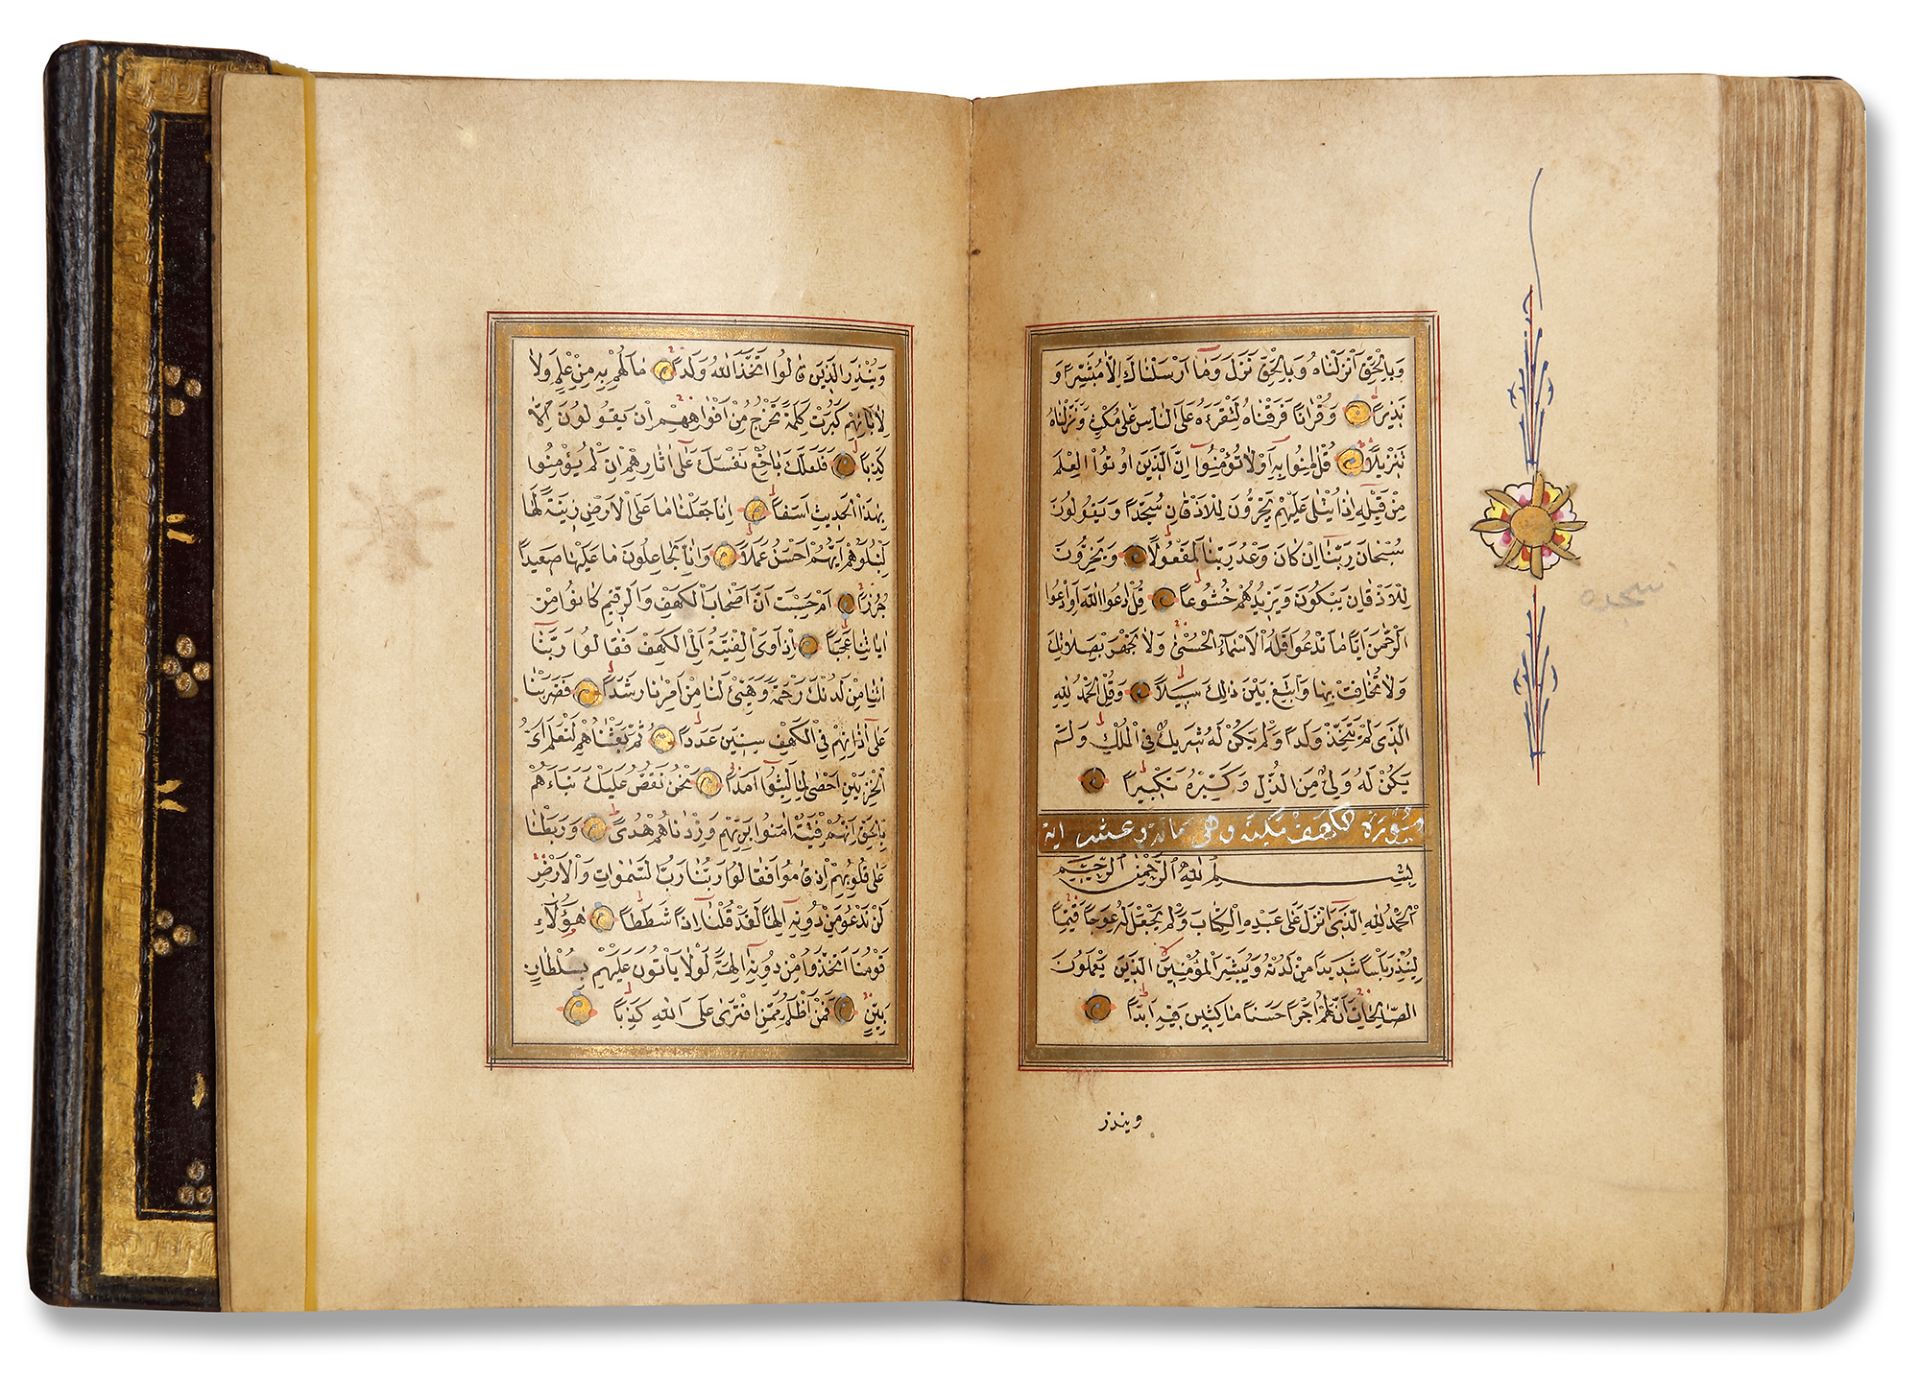 وَبِالْحَقِّ اَنْزَلْنَاهُ وَبِالْحَقِّ نَزَلَ وَمَا اَرْسَلْنَاكَ اِلَّا مُبَشِّرًا وَ
نَذِيرًا وَقُرْاٰنًا فَرَقْنَاهُ لِتَقْرَءَهُ عَلَى النَّاسِ عَلٰى مُكْثٍ وَنَزَّلْنَاهُ
تَنْزِيلًا قُلْ اٰمِنُوا بِهٖ اَوْ لَا تُؤْمِنُوا اِنَّ الَّذِينَ اُوتُوا الْعِلْمَ
مِنْ قَبْلِهٖ اِذَا يُتْلٰى عَلَيْهِمْ يَخِرُّونَ لِلْاَذْقَانِ سُجَّدًا وَيَقُولُونَ
سُبْحَانَ رَبِّنَا اِنْ كَانَ وَعْدُ رَبِّنَا لَمَفْعُولًا وَيَخِرُّونَ
لِلْاَذْقَانِ يَبْكُونَ وَيَزِيدُهُمْ خُشُوعًا قُلِ ادْعُوا اللّٰهَ اَوِ ادْعُوا
الرَّحْمٰنَ اَيًّا مَا تَدْعُوا فَلَهُ الْاَسْمَاءُ الْحُسْنٰى وَلَا تَجْهَرْ بِصَلَاتِكَ
وَلَا تُخَافِتْ بِهَا وَابْتَغِ بَيْنَ ذٰلِكَ سَبِيلًا وَقُلِ الْحَمْدُ لِلّٰهِ
الَّذِى لَمْ يَتَّخِذْ وَلَدًا وَلَمْ يَكُنْ لَهُ شَرِيكٌ فِى الْمُلْكِ وَلَمْ
يَكُنْ لَهُ وَلِىٌّ مِنَ الذُّلِّ وَكَبِّرْهُ تَكْبِيرًا
سورة الكهف مكية وهى مائة وعشر اية
بِسْمِ اللّٰهِ الرَّحْمٰنِ الرَّحِيمِ
اَلْحَمْدُ لِلّٰهِ الَّذِى اَنْزَلَ عَلٰى عَبْدِهِ الْكِتَابَ وَلَمْ يَجْعَلْ لَهُ عِوَجًا قَيِّمًا
لِيُنْذِرَ بَاْسًا شَدِيدًا مِنْ لَدُنْهُ وَيُبَشِّرَ الْمُؤْمِنِينَ الَّذِينَ يَعْمَلُونَ
الصَّالِحَاتِ اَنَّ لَهُمْ اَجْرًا حَسَنًا مَاكِثِينَ فِيهِ اَبَدًا
وينذر
سجده
وَيُنْذِرَ الَّذِينَ قَالُوا اتَّخَذَ اللّٰهُ وَلَدًا مَا لَهُمْ بِهٖ مِنْ عِلْمٍ وَلَا
لِاٰبَائِهِمْ كَبُرَتْ كَلِمَةً تَخْرُجُ مِنْ اَفْوَاهِهِمْ اِنْ يَقُولُونَ اِلَّا
كَذِبًا فَلَعَلَّكَ بَاخِعٌ نَفْسَكَ عَلٰى اٰثَارِهِمْ اِنْ لَمْ يُؤْمِنُوا
بِهٰذَا الْحَدِيثِ اَسَفًا اِنَّا جَعَلْنَا مَا عَلَى الْاَرْضِ زِينَةً لَهَا
لِنَبْلُوَهُمْ اَيُّهُمْ اَحْسَنُ عَمَلًا وَاِنَّا لَجَاعِلُونَ مَا عَلَيْهَا صَعِيدًا
جُرُزًا اَمْ حَسِبْتَ اَنَّ اَصْحَابَ الْكَهْفِ وَالرَّقِيمِ كَانُوا مِنْ
اٰيَاتِنَا عَجَبًا اِذْ اَوَى الْفِتْيَةُ اِلَى الْكَهْفِ فَقَالُوا رَبَّنَا
اٰتِنَا مِنْ لَدُنْكَ رَحْمَةً وَهَيِّئْ لَنَا مِنْ اَمْرِنَا رَشَدًا فَضَرَبْنَا
عَلٰى اٰذَانِهِمْ فِى الْكَهْفِ سِنِينَ عَدَدًا ثُمَّ بَعَثْنَاهُمْ لِنَعْلَمَ اَىُّ
الْحِزْبَيْنِ اَحْصٰى لِمَا لَبِثُوا اَمَدًا نَحْنُ نَقُصُّ عَلَيْكَ نَبَاَهُمْ
بِالْحَقِّ اِنَّهُمْ فِتْيَةٌ اٰمَنُوا بِرَبِّهِمْ وَزِدْنَاهُمْ هُدًى وَرَبَطْنَا
عَلٰى قُلُوبِهِمْ اِذْ قَامُوا فَقَالُوا رَبُّنَا رَبُّ السَّمٰوَاتِ وَالْاَرْضِ
لَنْ نَدْعُوَ مِنْ دُونِهٖ اِلٰهًا لَقَدْ قُلْنَا اِذًا شَطَطًا هٰؤُلَاءِ
قَوْمُنَا اتَّخَذُوا مِنْ دُونِهٖ اٰلِهَةً لَوْلَا يَاْتُونَ عَلَيْهِمْ بِسُلْطَانٍ
بَيِّنٍ فَمَنْ اَظْلَمُ مِمَّنِ افْتَرٰى عَلَى اللّٰهِ كَذِبًا